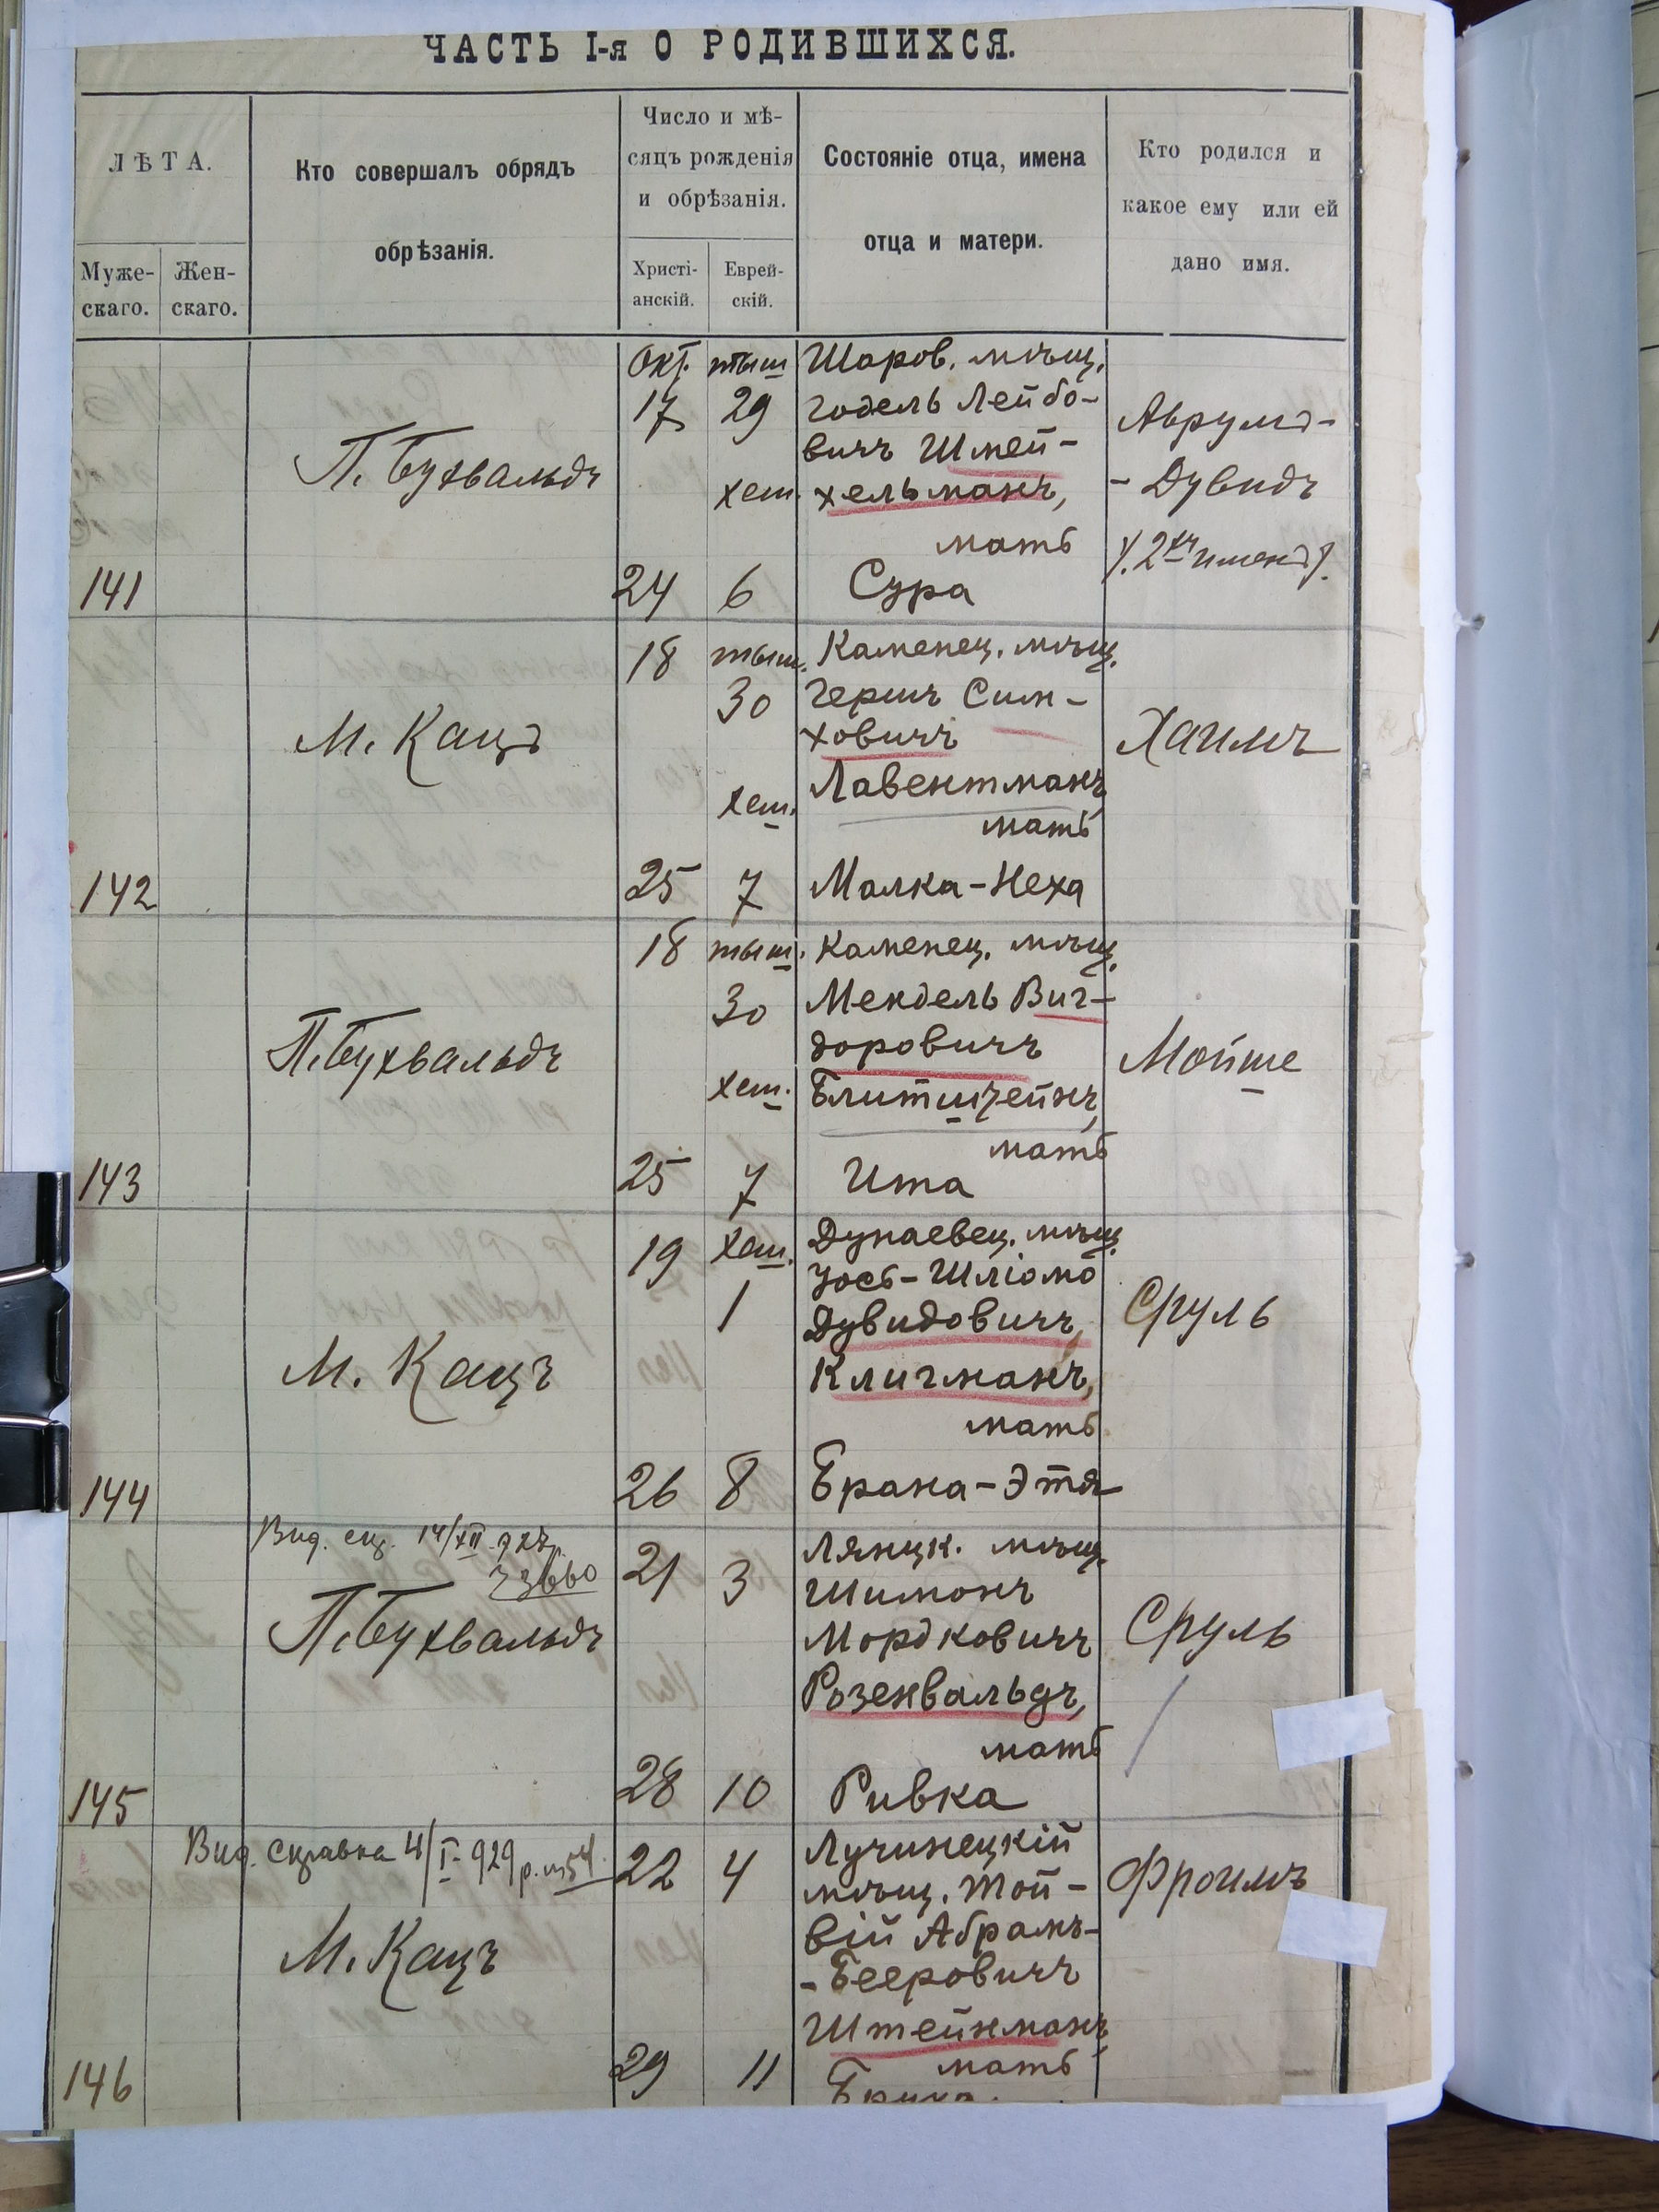 ЧАСТЬ I-я О РОДИВШИХСЯ.
ЛѢТА.
Муже-
скаго.
Жен-
скаго.
Кто совершалъ обрядъ
обрѣзанія.
Число и мѣ-
сяцъ рожденія
и обрѣзанія.
Христі-
анскій.
Еврей-
скій.
Состояніе отца, имена
отца и матери.
Кто родился и
какое ему или ей
дано имя.
141
П. Бухвальдъ
Окт. тыш
17 29
хеш.
24 6
Шаров. мѣщ.
Годель Лейбо-
вичъ Шмей-
хельманъ,
мать
Сура
Аврумъ-
-Дувидъ
/. 2хъ именъ /.
142
М. Кацъ
18 тыш.
30
хеш.
25 7
Каменец. мѣщ.
Гершъ Сим-
ховичъ
Лавентманъ
мать
Малка-Неха
Хаимъ
143
П. Бухвальдъ
18 тыш.
30
хеш.
25 7
Каменец. мѣщ.
Мендель Виг-
доровичъ
Блитштейнъ,
мать
Ита
Мойше
144
М. Кацъ
19 хеш.
1
26 8
Дунаевец. мѣщ.
Уось-Шліомо
Дувидовичъ
Клигманъ,
мать
Брана-Этя
Сруль
145
Вид. 14/XII 927р.
П. Бухвальдъ
21 3
28 10
Лянцк. мѣщ.
Шимонъ
Мордковичъ
Розенвальдъ,
мать
Ривка
Сруль
146
Вид. справка 4/I-929р.
М. Кацъ
22 4
29 11
Лучинецкій
мѣщ. Той-
вій Абрамъ-
-Бееровичъ
Штейнманъ
мать
Фроимъ